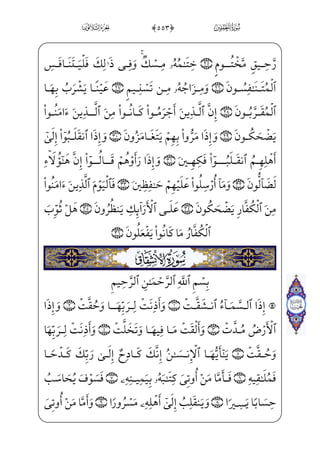 سُورَةُ الْمُطَفِّفِينَ ﴿٥٥٣﴾ الْجُزْءُ الثَّلَاثُونَ
رَّحِيقٍ مَّخْتُومٍ ٢٥ خِتَٰمُهُۥ مِسْكٌ ۚ وَفِى ذَٰلِكَ فَلْيَتَنَافَسِ
ٱلْمُتَنَٰفِسُونَ ٢٦ وَمِزَاجُهُۥ مِن تَسْنِيمٍ ٢٧ عَيْنًا يَشْرَبُ بِهَا
ٱلْمُقَرَّبُونَ ٢٨ إِنَّ ٱلَّذِينَ أَجْرَمُوا۟ كَانُوا۟ مِنَ ٱلَّذِينَ ءَامَنُوا۟
يَضْحَكُونَ ٢٩ وَإِذَا مَرُّوا۟ بِهِمْ يَتَغَامَزُونَ ٣٠ وَإِذَا ٱنقَلَبُوٓا۟ إِلَىٰٓ
أَهْلِهِمُ ٱنقَلَبُوا۟ فَكِهِينَ ٣١ وَإِذَا رَأَوْهُمْ قَالُوٓا۟ إِنَّ هَٰٓؤُلَآءِ
لَضَآلُّونَ ٣٢ وَمَآ أُرْسِلُوا۟ عَلَيْهِمْ حَٰفِظِينَ ٣٣ فَٱلْيَوْمَ ٱلَّذِينَ ءَامَنُوا۟
مِنَ ٱلْكُفَّارِ يَضْحَكُونَ ٣٤ عَلَى ٱلْأَرَآئِكِ يَنظُرُونَ ٣٥ هَلْ ثُوِّبَ
ٱلْكُفَّارُ مَا كَانُوا۟ يَفْعَلُونَ ٣٦
سُورَةُ الِانْشِقَاقِ
بِسْمِ ٱللَّهِ ٱلرَّحْمَٰنِ ٱلرَّحِيمِ
إِذَا ٱلسَّمَآءُ ٱنشَقَّتْ ١ وَأَذِنَتْ لِرَبِّهَا وَحُقَّتْ ٢ وَإِذَا
ٱلْأَرْضُ مُدَّتْ ٣ وَأَلْقَتْ مَا فِيهَا وَتَخَلَّتْ ٤ وَأَذِنَتْ لِرَبِّهَا
وَحُقَّتْ ٥ يَٰٓأَيُّهَا ٱلْإِنسَٰنُ إِنَّكَ كَادِحٌ إِلَىٰ رَبِّكَ كَدْحًا
فَمُلَٰقِيهِ ٦ فَأَمَّا مَنْ أُوتِىَ كِتَٰبَهُۥ بِيَمِينِهِۦ ٧ فَسَوْفَ يُحَاسَبُ
حِسَابًا يَسِيرًا ٨ وَيَنقَلِبُ إِلَىٰٓ أَهْلِهِۦ مَسْرُورًا ٩ وَأَمَّا مَنْ أُوتِىَ